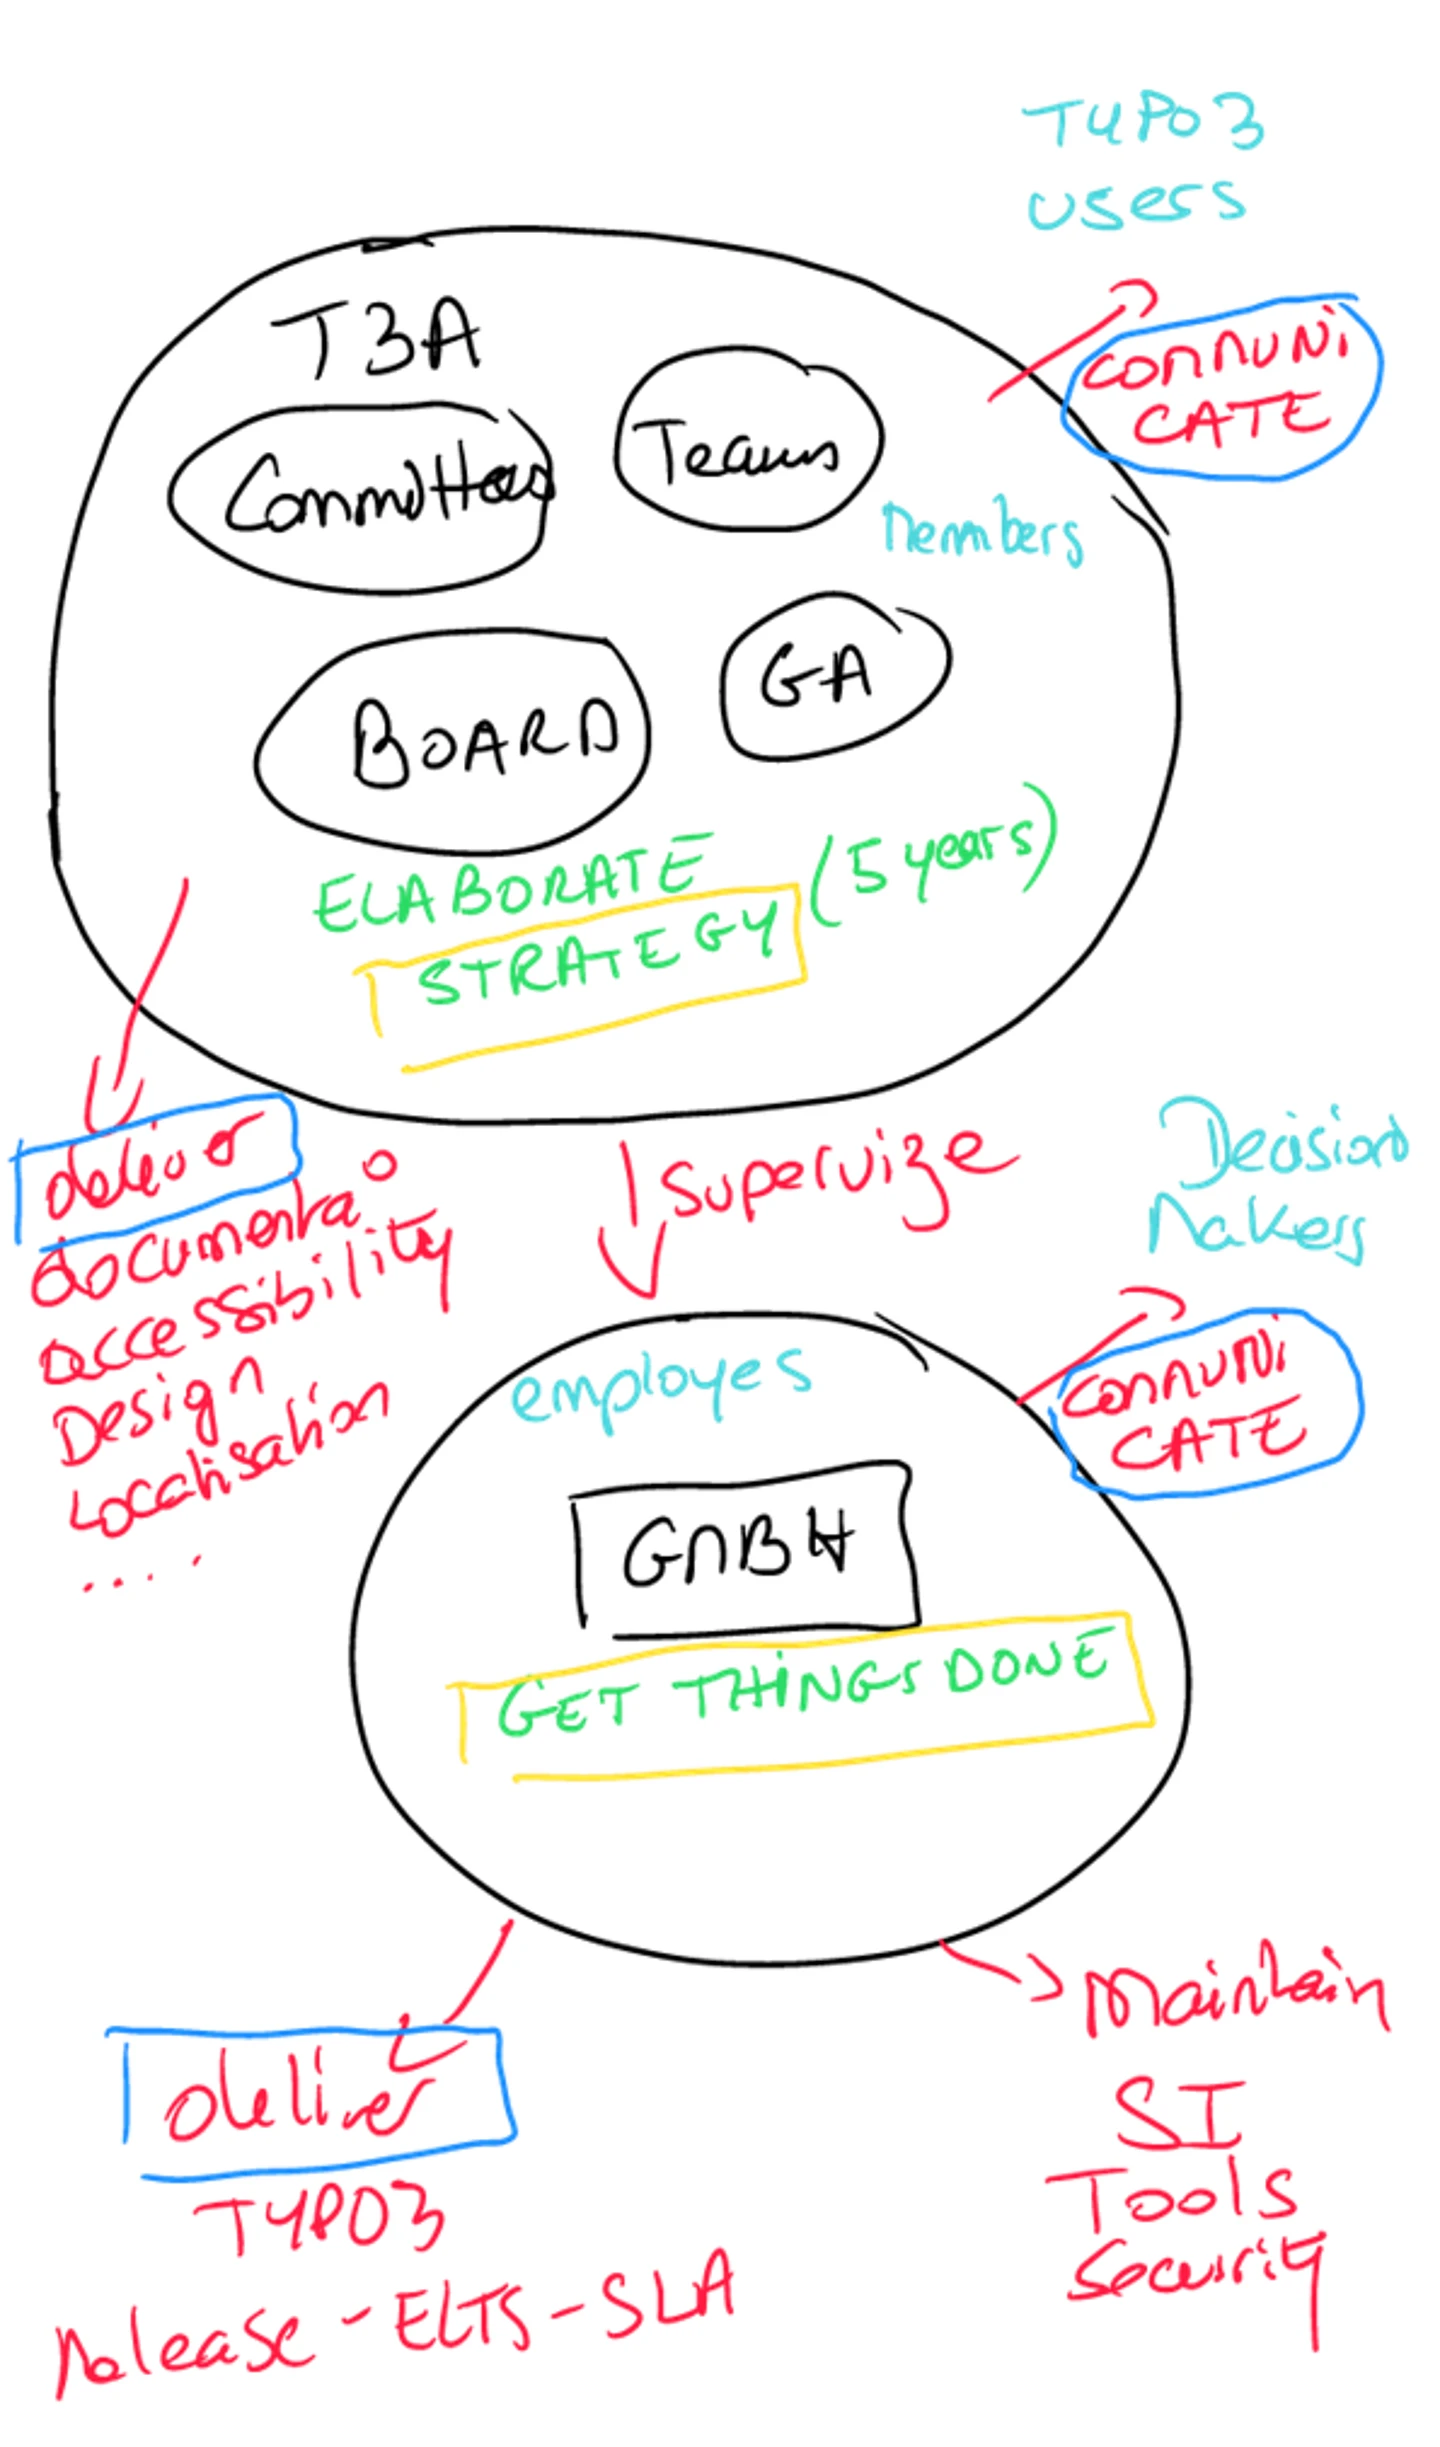 TYPO3
users
T3A
Committees
Teams
COMMUNI
CATE
Members
BOARD
GA
ELABORATE (5 years)
STRATEGY
deliver
documenta°
accessibility
Design
Localisation
....
Supervize
Decision
Makers
employes
COMMUNI
CATE
GMBH
GET THINGS DONE
deliver
TYPO3
Release - ELTS - SLA
Maintain
SI
Tools
Security